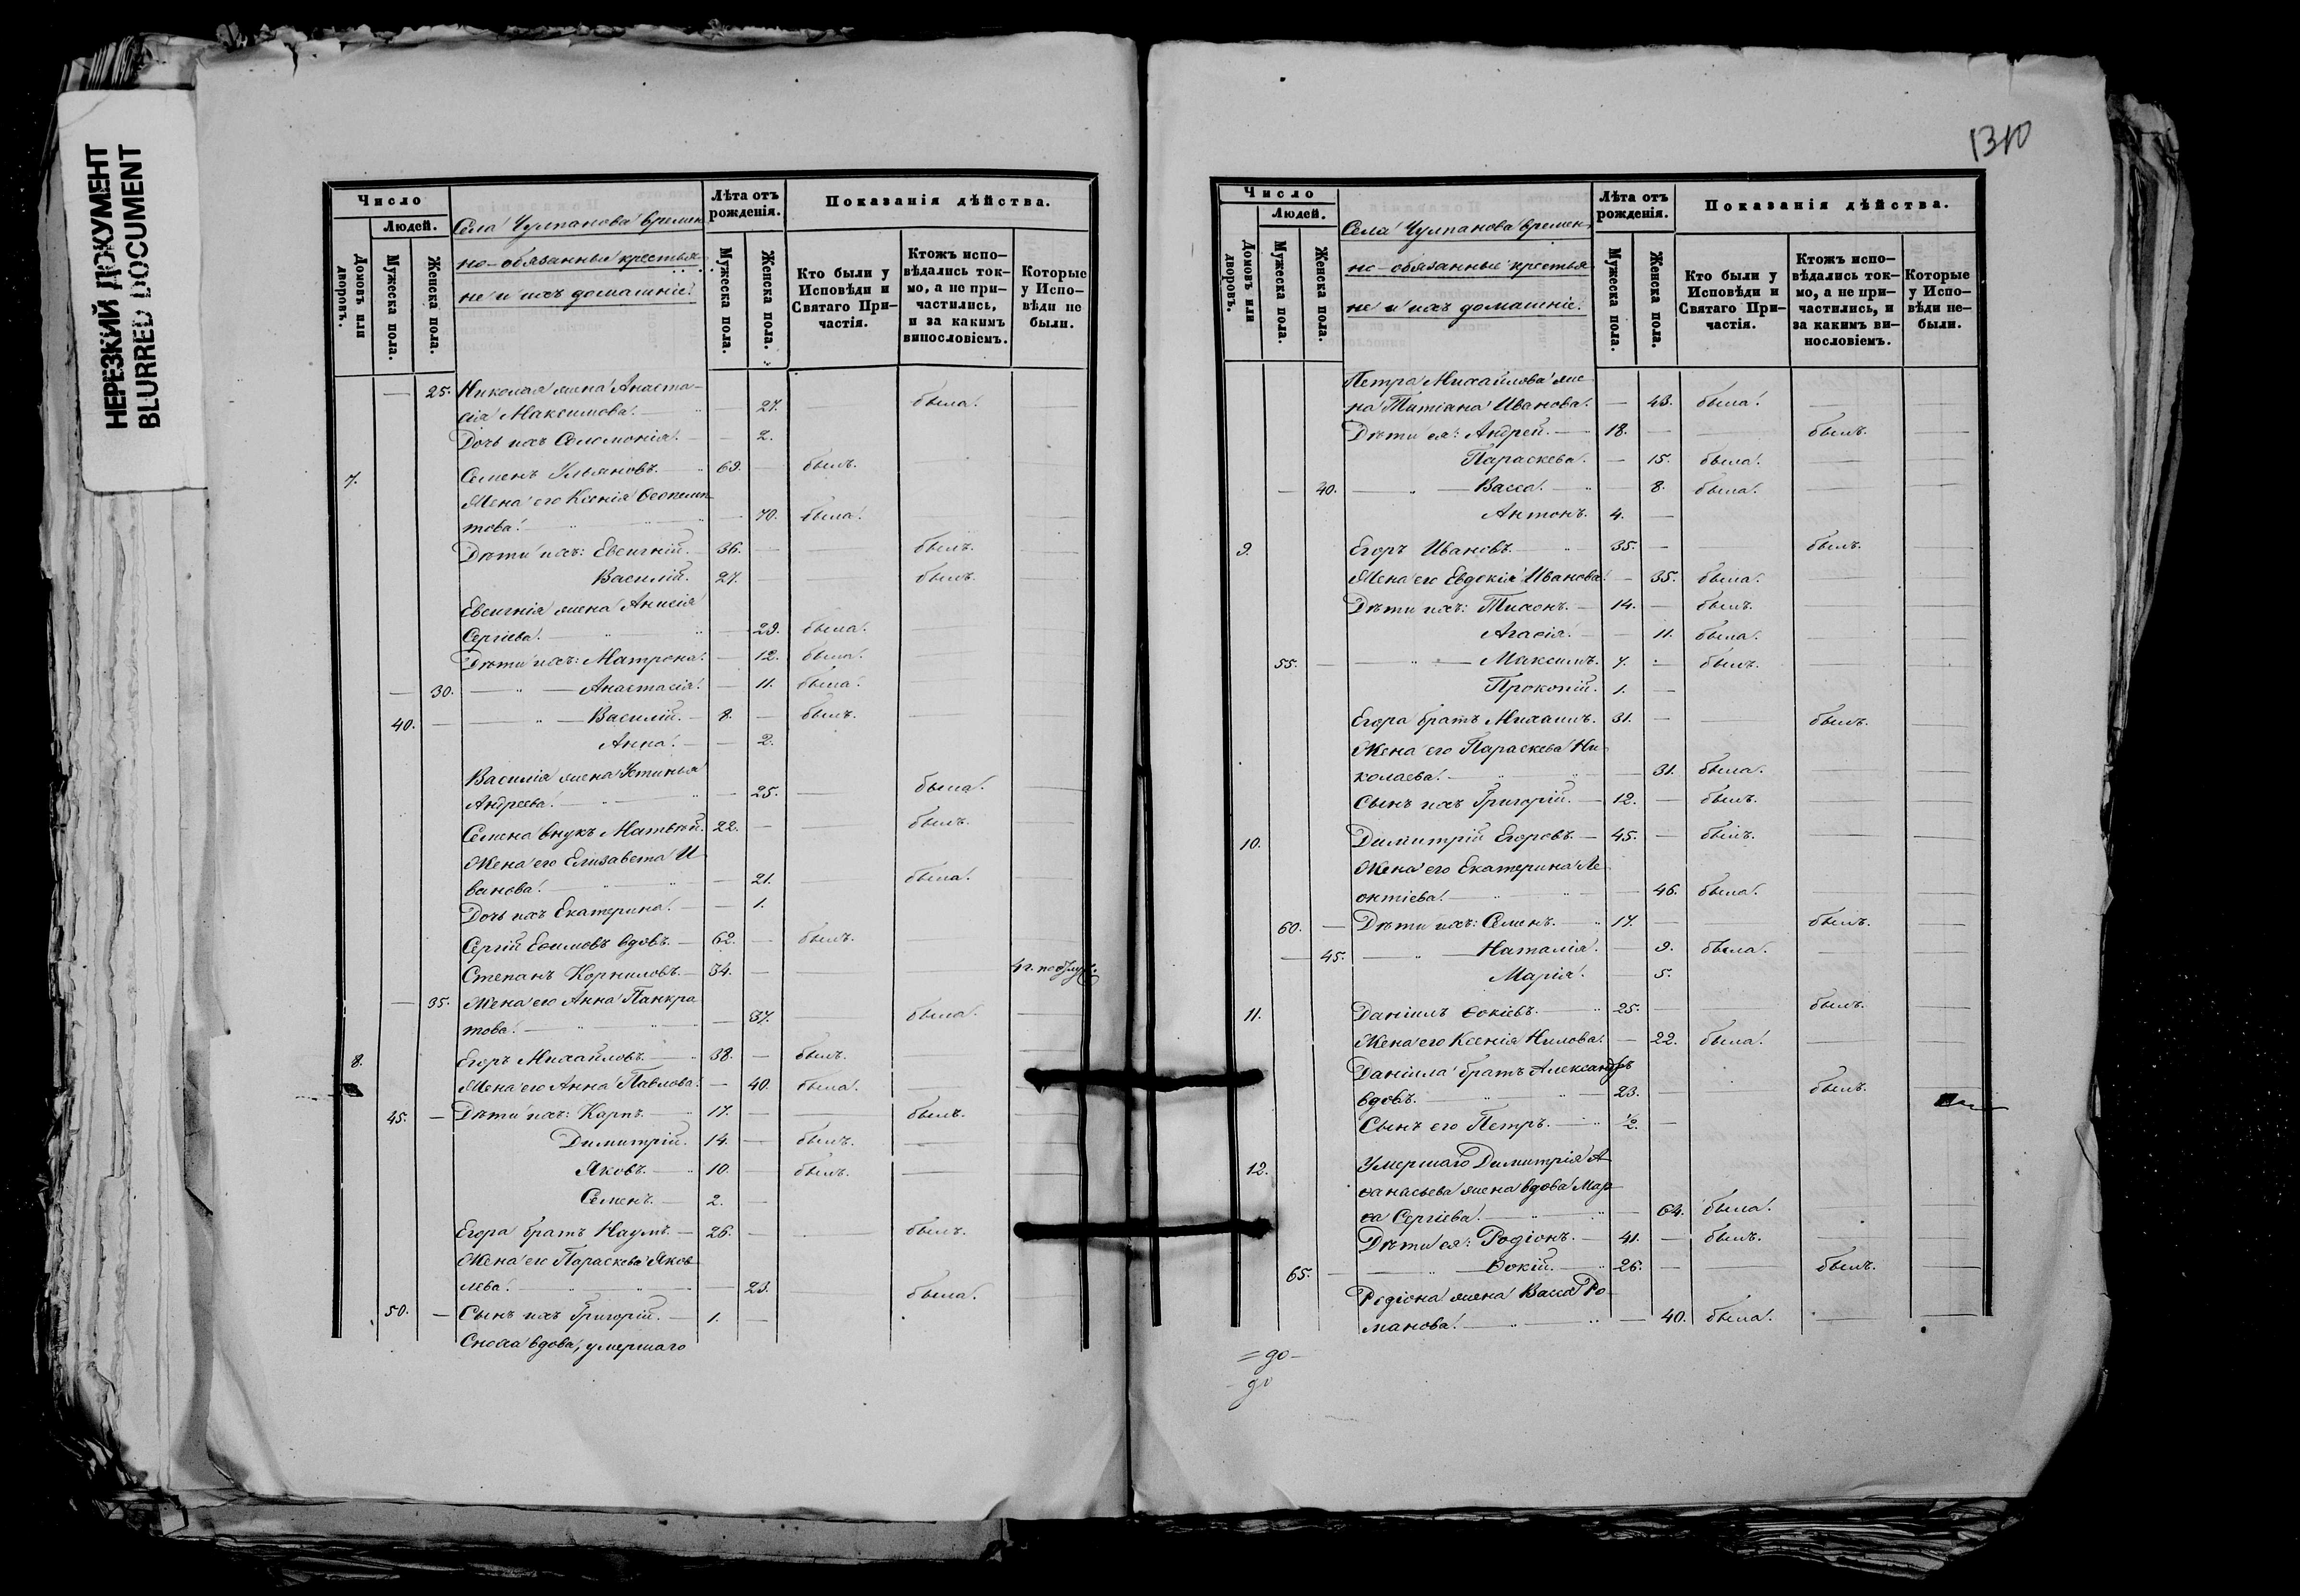 НЕРЕЗКИЙ ДОКУМЕНТ
BLURRED DOCUMENT
Число
Людей.
Домовъ или дворовъ.
Мужеска пола.
Женска пола.
Села Чулпанова времен
но-обязанные крестья
не и ихъ домашніе.
Лѣта отъ рожденія.
Мужеска пола.
Женска пола.
Показанія дѣйства.
Кто были у Исповѣди и Святаго При-частія.
Ктожъ испо-вѣдались ток-мо, а не при-частились, и за какимъ винословіемъ.
Которые у Испо-вѣди не были.
— 25. Николая жена Анаста-
сія Максимова. — 27. — была. —
Дочь ихъ Соломонія. — 2.
7. Семенъ Ульяновъ. 69. — былъ. —
Жена его Ксенія Ѳеопемп
това. — 70. была. — —
Дѣти ихъ: Евсигній. 36. — — былъ. —
Василій. 27. былъ.
Евсигнія жена Анисія
Сергіева. — 29. была. — —
Дѣти ихъ: Матрона. — 12. была. —
— 30. — Анастасія. — 11. была. —
40. — — Василій. — 8. — былъ. —
Анна. — 2.
Василія жена Устинья
Андреева. — 25. — была. —
Семена внукъ Матвѣй. 22. — — былъ. —
Жена его Елизавета И
ванова. — 21. была. —
Дочь ихъ Екатерина. — 1.
Сергій Ефимовъ вдовъ. — 62. — былъ. —
Степанъ Корниловъ. — 54. —
— 35. Жена его Анна Панкра
това. — 37. была. —
8. Егоръ Михайловъ. — 38. — былъ. —
Жена его Анна Павлова. — 40. была.
45. — Дѣти ихъ: Карпъ. — 17. — — былъ. —
Димитрій. 14. — былъ. —
Яковъ. — 10. — былъ. —
Семенъ. — 2. —
Егора братъ Наумъ. — 26. — — былъ.
Жена его Параскева Яков
лева. — 23. была. —
50. — Сынъ ихъ Григорій. — 1. —
Сноха вдова, умершаго
1310
Число
Людей.
Домовъ или дворовъ.
Мужеска пола.
Женска пола.
Села Чулпанова времен
но-обязанные крестья
не и ихъ домашніе.
Лѣта отъ рожденія.
Мужеска пола.
Женска пола.
Показанія дѣйства.
Кто были у Исповѣди и Святаго При-частія.
Ктожъ испо-вѣдались ток-мо, а не при-частились, и за какимъ ви-нословіемъ.
Которые у Испо-вѣди не-были.
Петра Михайлова же
на Татіана Иванова. — 43. была. — —
Дѣти ея: Андрей. — 18. — — былъ. —
Параскева. — 15. была. —
— 40. — Васса. — 8. была. — —
Антонъ. 4. —
9. Егоръ Ивановъ. 35. — — былъ. —
Жена его Евдокія Иванова. — 35. была. —
Дѣти ихъ: Тихонъ. — 14. — былъ.
Агафія. — 11. была. — —
55. — — Максимъ. 7. — былъ. — —
Прокопій. 1. —
Егора братъ Михаилъ. 31. — — былъ. —
Жена его Параскева Ни
колаева. — 31. была. — —
Сынъ ихъ Григорій. — 12. — былъ. — —
10. Димитрій Егоровъ. — 45. — былъ. — —
Жена его Екатерина Ле
онтіева. — 46. была. — —
60. — Дѣти ихъ: Семенъ. — 17. — — былъ. —
— 45. — Наталія. — 9. была. — —
Марія. — 5.
11. Даніилъ Фокіевъ. — 25. — — былъ. —
Жена его Ксенія Нилова. — 22. была. —
Даніила братъ Александръ
вдовъ. — 23. — — былъ. —
Сынъ его Петръ. — 1/2. —
12. Умершаго Димитрія А
фанасьева жена вдова Мар
фа Сергіева. — 64. была.
Дѣти ея: Родіонъ. — 41. — былъ. —
65. — — Фокій. — 26. — — былъ. —
Родіона жена Васса Ро-
манова. — 40. была. — —
= до —
до